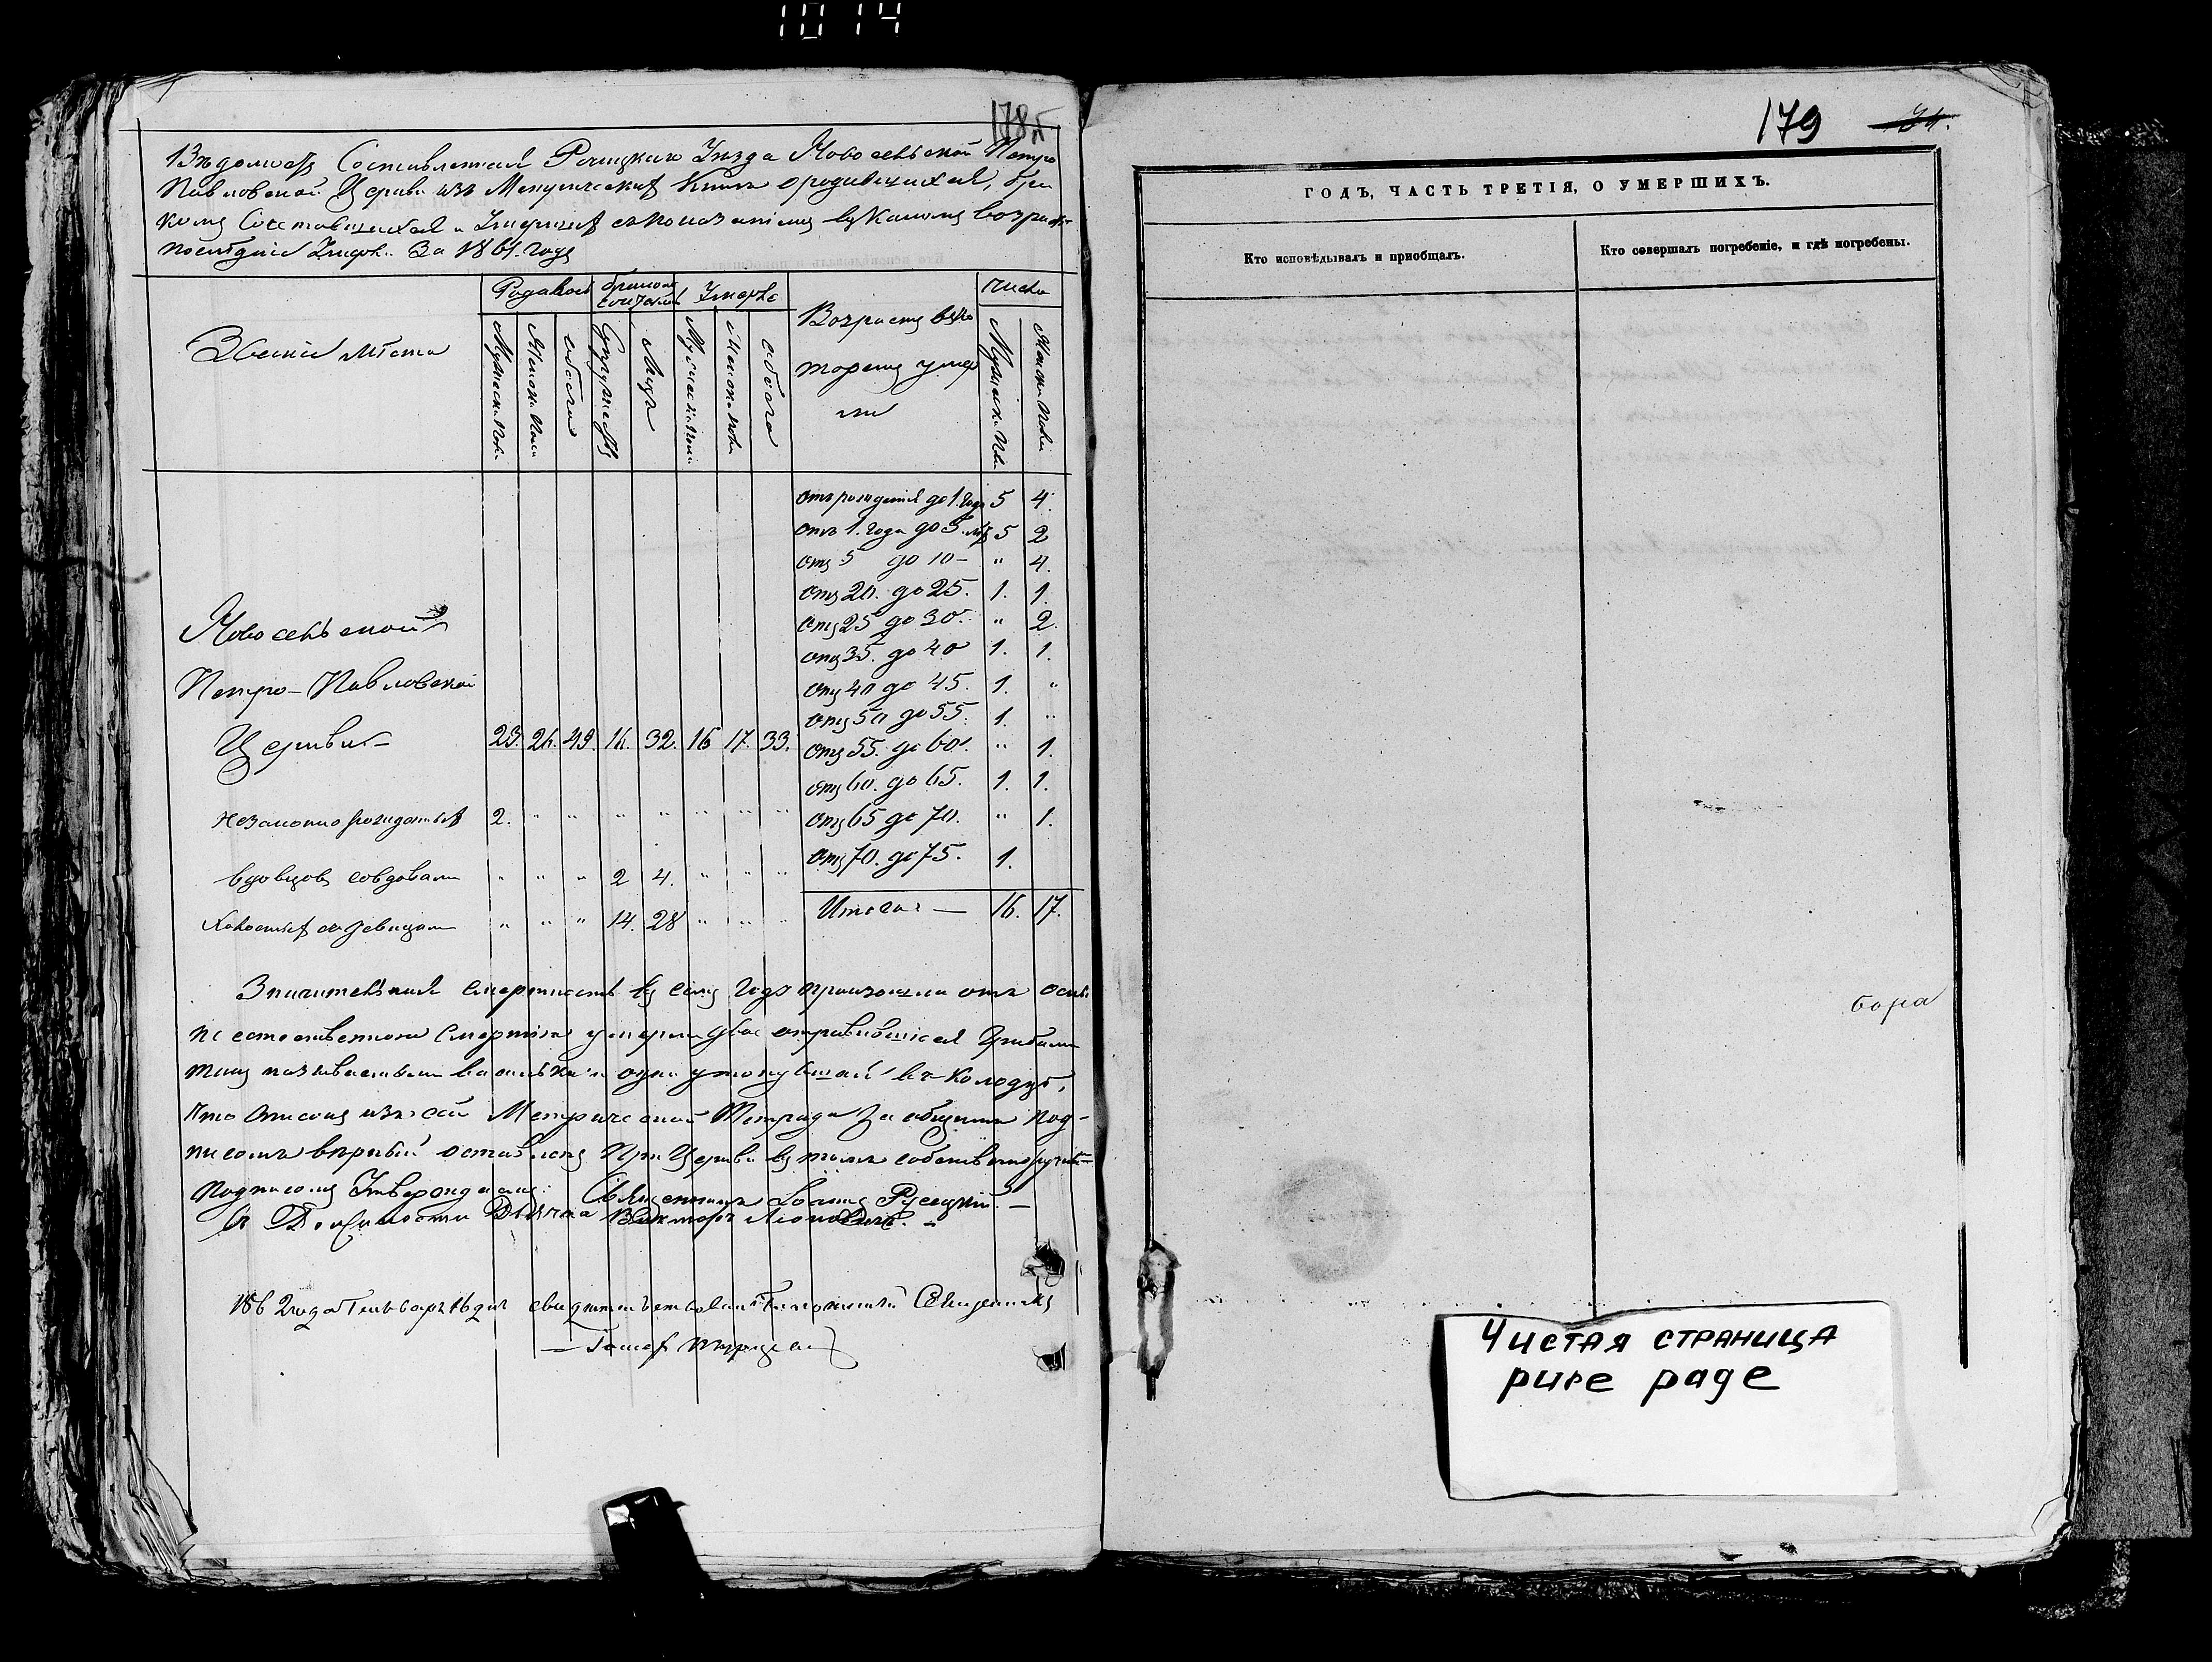 1014
178
Вѣдомость Составленная Уѣзда Новосельской Петро
Павловской Церкви изъ Метрическихъ Книгъ о родившихся, бра
комъ Сочетавшихся и Умершихъ съ показаніемъ въ какомъ возра
послѣдніе Умерли. За 1861. годъ
Званіе мѣста
Родилось
бракомъ сочетал.
Умерло
Возрастъ въ ко
торомъ умер
ли
число
Мужеск. Пола
Женск. Пола
обоего
Супружествъ
Лицъ
Мужеск. Пола
Женск. Пола
обоего
Мужеск. Пол.
Женск. Пола
отъ рожденія до 1. года 5 4.
отъ 1. года до 5. лѣтъ 5 2
отъ 5 до 10 – " 4.
отъ 20. до 25. 1. 1.
отъ 25 до 30. " 2.
отъ 35. до 40 1. 1.
отъ 40 до 45. 1. "
отъ 50 до 55. 1. "
отъ 55. до 60. " 1.
отъ 60. до 65. 1. 1.
отъ 65 до 70. " 1.
отъ 70. до 75. 1.
Итого — 16. 17.
Новосельской
Петро-Павловской
Церкви – 23. 26. 49 16. 32. 16 17. 33.
незаконнорожденныхъ 2. " " " " " " "
вдовцовъ со вдовами " " " 2 4. " " "
Холостыхъ съ девицами " " " 14. 28 " " "
Значительная смертность въ семъ годѣ произошла отъ оспы
не естественною Смертію умерли двое отравившіеся Грибами
называемыми и одна утонувшая въ колодцѣ,
Что описана изъ сей Метрической Тетрада за общимъ под-
писомъ вѣрный оставленъ При Церкви въ томъ собственноручнымъ
подписомъ Утверждаемъ: Священникъ Іоаннъ Русецкій. –
Въ Должности Дьячка Викторъ
1862 года Генваря 16 дня свидѣтельствовалъ Благочинный Священникъ
– Іосифъ
179 24.
ГОДЪ, ЧАСТЬ ТРЕТІЯ, О УМЕРШИХЪ.
Кто исповѣдывалъ и приобщалъ.
Кто совершалъ погребеніе, и гдѣ погребены.
бора
Чистая страница
pure page